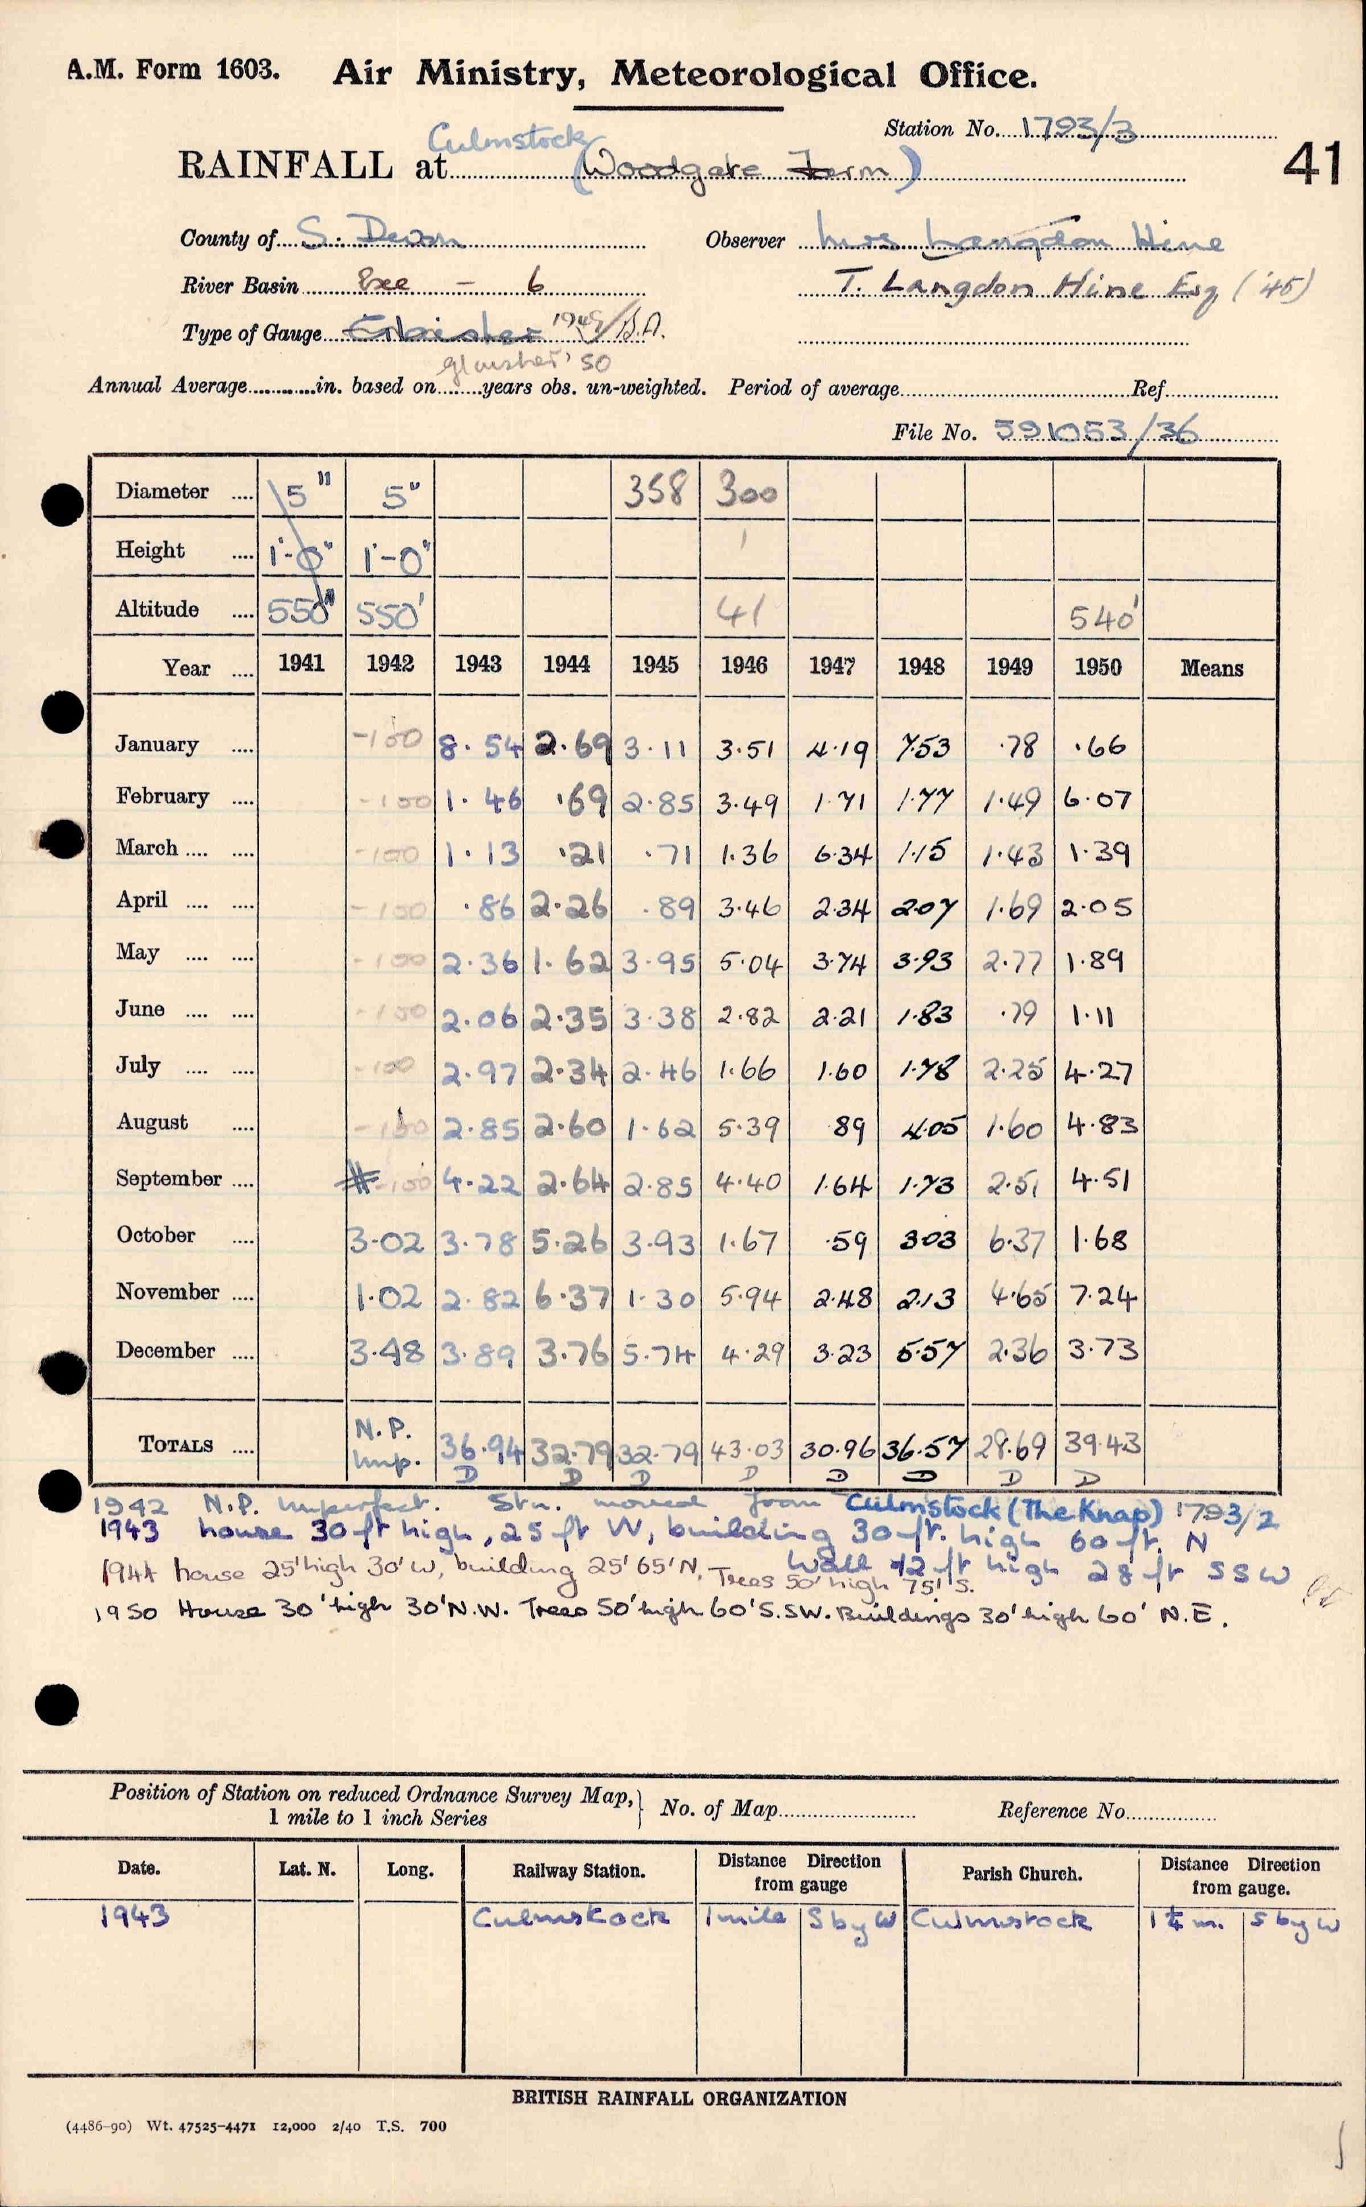 A.M. Form 1603. Air Ministry, Meteorological Office.
Station No. 1793/3
Culmstock
RAINFALL at (Woodgate Farm) 41
County of S. Devon Observer Mrs Langdon Hine
River Basin Exe - 6 T. Langdon Hine Esq ('45)
Type of Gauge 1949/B.A.
glaisher '50
Annual Average in. based on years obs. un-weighted. Period of average Ref.
File No. 591053/36
Diameter .... 5" 5" 358 300
Height .... 1'-0" 1'-0" 1
Altitude .... 550" 550' 41 540'
Year .... 1941 1942 1943 1944 1945 1946 1947 1948 1949 1950 Means
January .... -100 8.54 2.69 3.11 3.51 4.19 7.53 .78 .66
February .... -100 1.46 .69 2.85 3.49 1.71 1.77 1.49 6.07
March .... .... -100 1.13 .21 .71 1.36 6.34 1.15 1.43 1.39
April .... .... -100 .86 2.26 .89 3.46 2.34 2.07 1.69 2.05
May .... .... -100 2.36 1.62 3.95 5.04 3.74 3.93 2.77 1.89
June .... .... -100 2.06 2.35 3.38 2.82 2.21 1.83 .79 1.11
July .... .... -100 2.97 2.34 2.46 1.66 1.60 1.78 2.25 4.27
August .... -100 2.85 2.60 1.62 5.39 .89 4.05 1.60 4.83
September .... # -100 4.22 2.64 2.85 4.40 1.64 1.73 2.51 4.51
October .... 3.02 3.78 5.26 3.93 1.67 .59 3.03 6.37 1.68
November .... 1.02 2.82 6.37 1.30 5.94 2.48 2.13 4.65 7.24
December .... 3.48 3.89 3.76 5.74 4.29 3.23 5.57 2.36 3.73
TOTALS .... N.P. Imp. 36.94 32.79 32.79 43.03 30.96 36.57 28.69 39.43
D D D D D D D D
1942 N.P. Imperfect. Stn. moved from Culmstock (The Knap) 1793/2
1943 house 30 ft high, 25 ft W, building 30 ft. high 60 ft. N
Wall 12 ft high 28 ft SSW
1944 house 25' high 30' W, building 25' 65' N, Trees 50' high 75' S.
1950 House 30' high 30' N.W. Trees 50' high 60' S.SW. Buildings 30' high 60' N.E.
Position of Station on reduced Ordnance Survey Map,
1 mile to 1 inch Series } No. of Map Reference No.
Date. Lat. N. Long. Railway Station. Distance Direction from gauge Parish Church. Distance Direction from gauge.
1943 Culmstock 1 mile S by W Culmstock 1¼ m. S by W
BRITISH RAINFALL ORGANIZATION
(4486-90) Wt. 47525-4471 12,000 2/40 T.S. 700